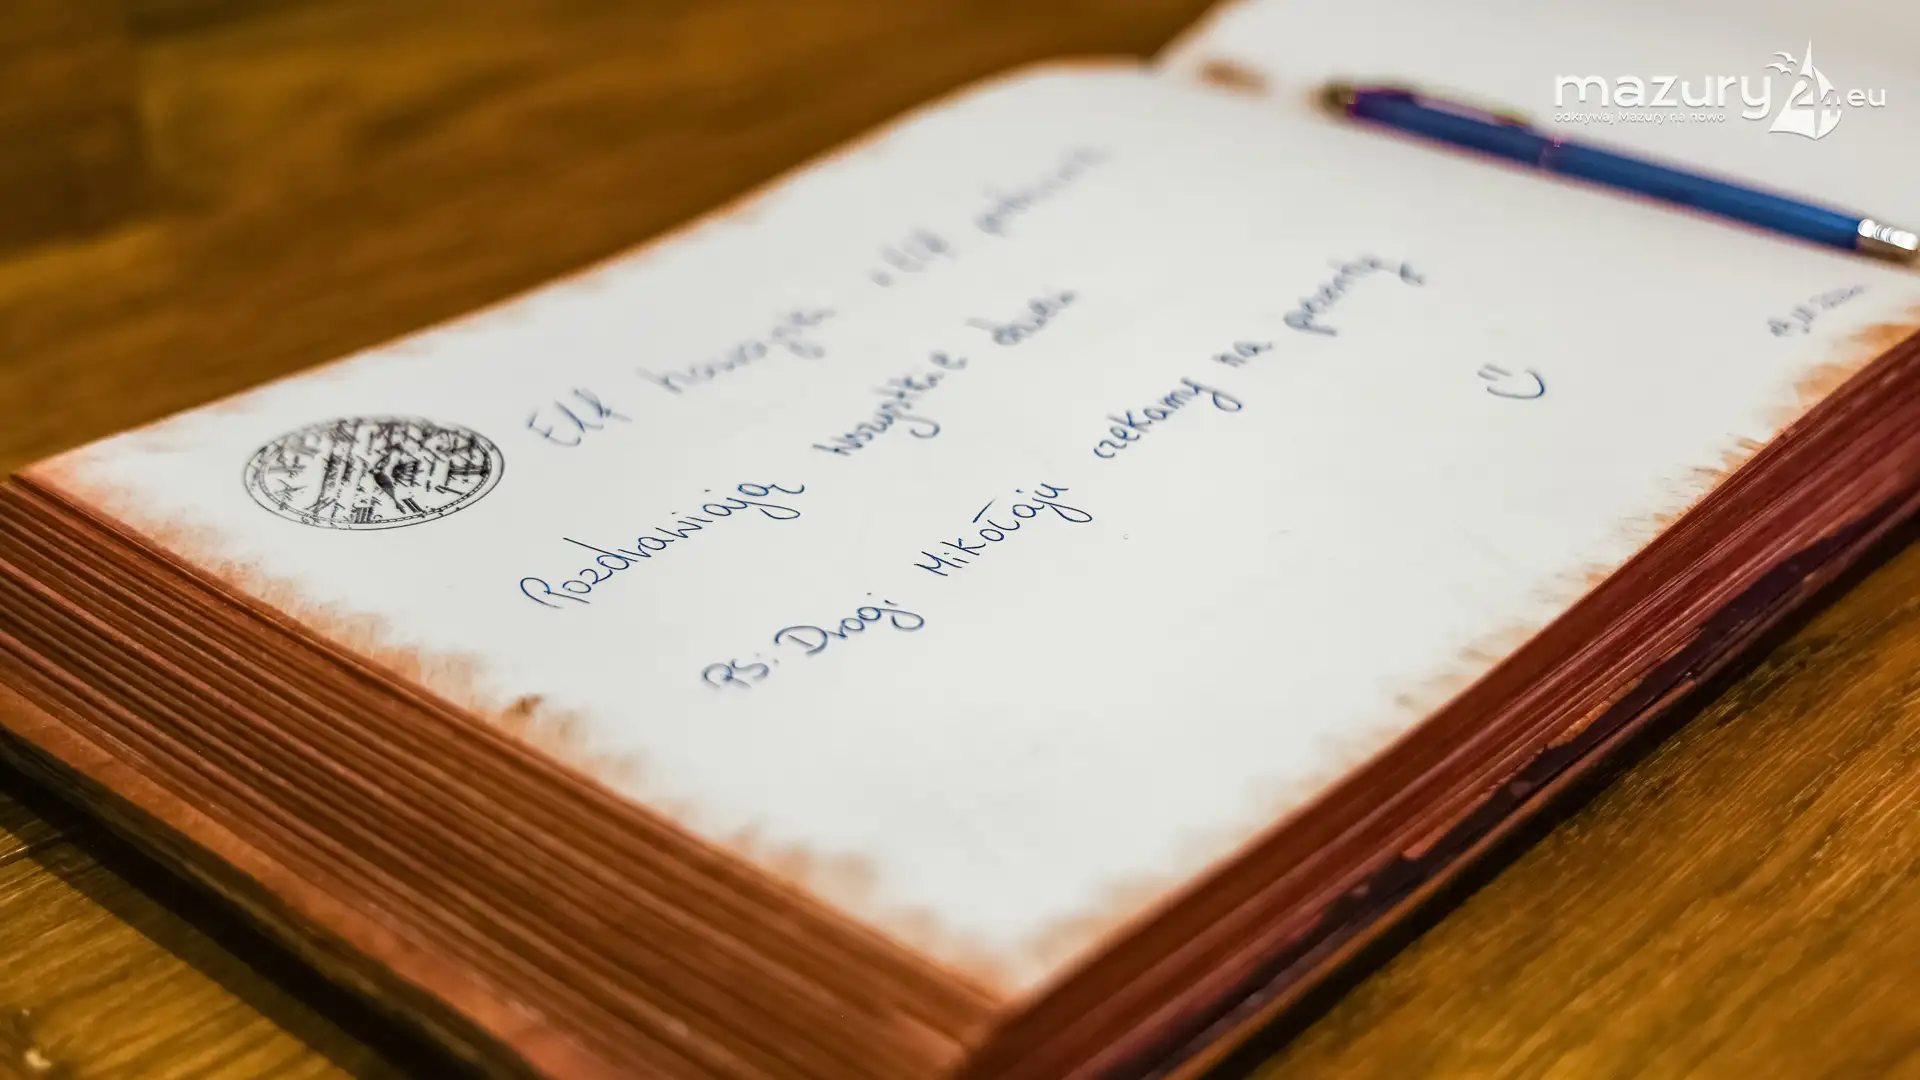 mazury24.eu
odkrywaj Mazury na nowo
Elf
Pozdrawiają wszystkie dzieci
PS: Drogi Mikołaju czekamy na prezenty